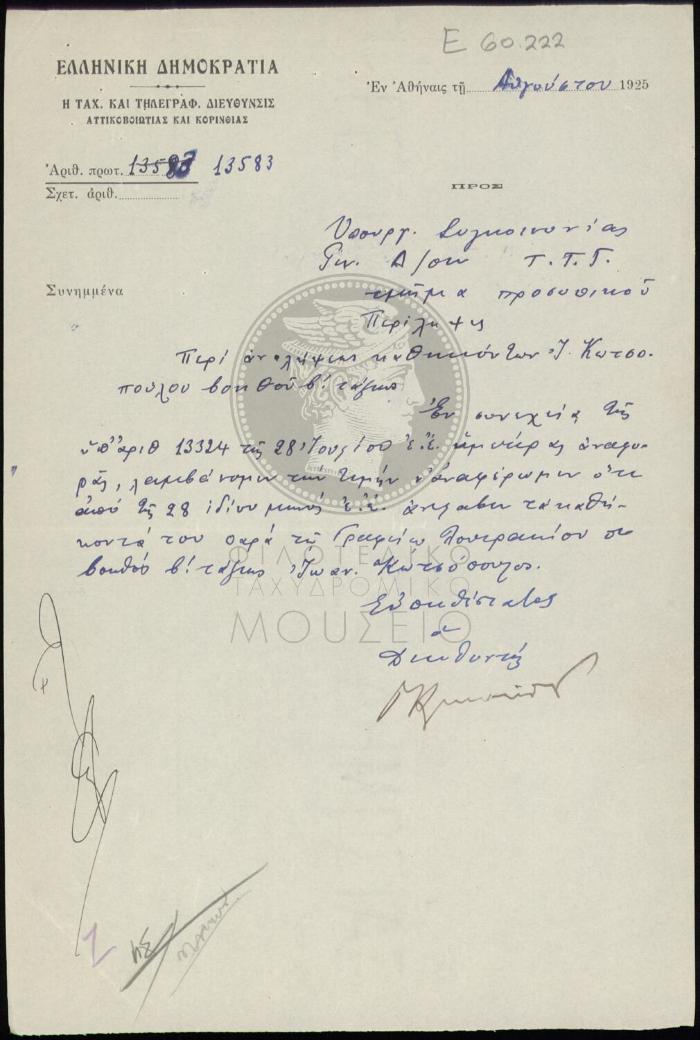 Ε 60.222
ΕΛΛΗΝΙΚΗ ΔΗΜΟΚΡΑΤΙΑ
Η ΤΑΧ. ΚΑΙ ΤΗΛΕΓΡΑΦ. ΔΙΕΥΘΥΝΣΙΣ
ΑΤΤΙΚΟΒΟΙΩΤΙΑΣ ΚΑΙ ΚΟΡΙΝΘΙΑΣ
Ἐν Ἀθήναις τῇ Αὐγούστου 1925
Ἀριθ. πρωτ. 13583
Σχετ. ἀριθ.
ΠΡΟΣ
Ὑπουργ. Συγκοινωνίας
Γεν. Δ/σιν Τ.Τ.Τ.
τμῆμα προσωπικοῦ
Συνημμένα
Περίληψις
Περί ἀναλήψεως καθηκόντων Ἰ. Κωτσο-
πούλου βοηθοῦ β! τάξεως
Ἐν συνεχείᾳ τῆς
ὑπ' ἀριθ 13324 τῆς 28 Ἰουλίου ἐ.ἔ. ἡμετέρας ἀναφο-
ρᾶς, λαμβάνομεν την τιμήν ν' ἀναφέρωμεν ὅτι
ἀπό τῆς 28 ἰδίου μηνός ἐ.ἔ. ἀνέλαβε τα καθή-
κοντά του παρά τῷ Γραφείῳ Λουτρακίου ὁ
βοηθός β! τάξεως Ἰωαν. Κωτσόπουλος.
Εὐπειθέστατος
ὁ
Διευθυντής
ΦΙΛΟΤΕΛΙΚΟ
ΤΑΧΥΔΡΟΜΙΚΟ
ΜΟΥΣΕΙΟ